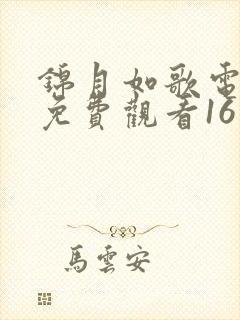 錦月如歌電
免費觀看16
馬雲安